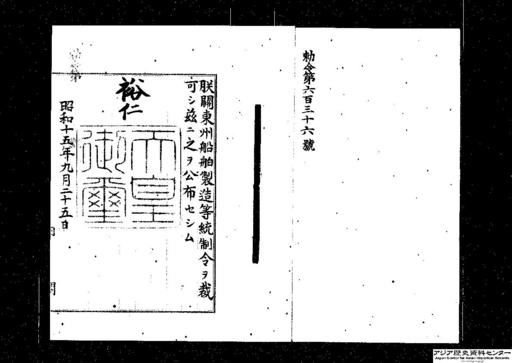 勅令第六百三十六號
朕關東州船舶製造等統制令ヲ裁
可シ茲ニ之ヲ公布セシム
裕仁
天皇
御璽
昭和十五年九月二十五日
閣
アジア歴史資料センター
Japan Center for Asian Historical Records